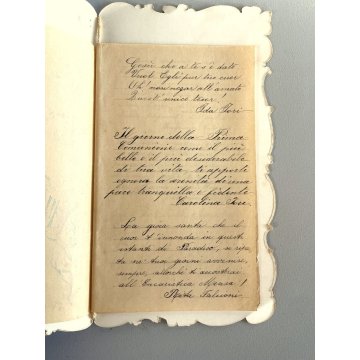 Gesù che a te s'è dato
Vuol Egli pur tuo cuor
Oh! non negar all'amato
Quest'unico tesor.
Ida Fori
Il giorno della Prima
Comunione come il più
bello e il più desiderabile
di tua vita, ti apporti
ognora la serenità eterna
pace tranquilla e fidente
Carolina Fori
La gioia santa che il
cuor t'innonda in questi
istanti di Paradiso, si ripeta
ne' tuoi giorni avvenire,
sempre, allorchè ti accosterai
all'Eucaristica Mensa!
Falconi